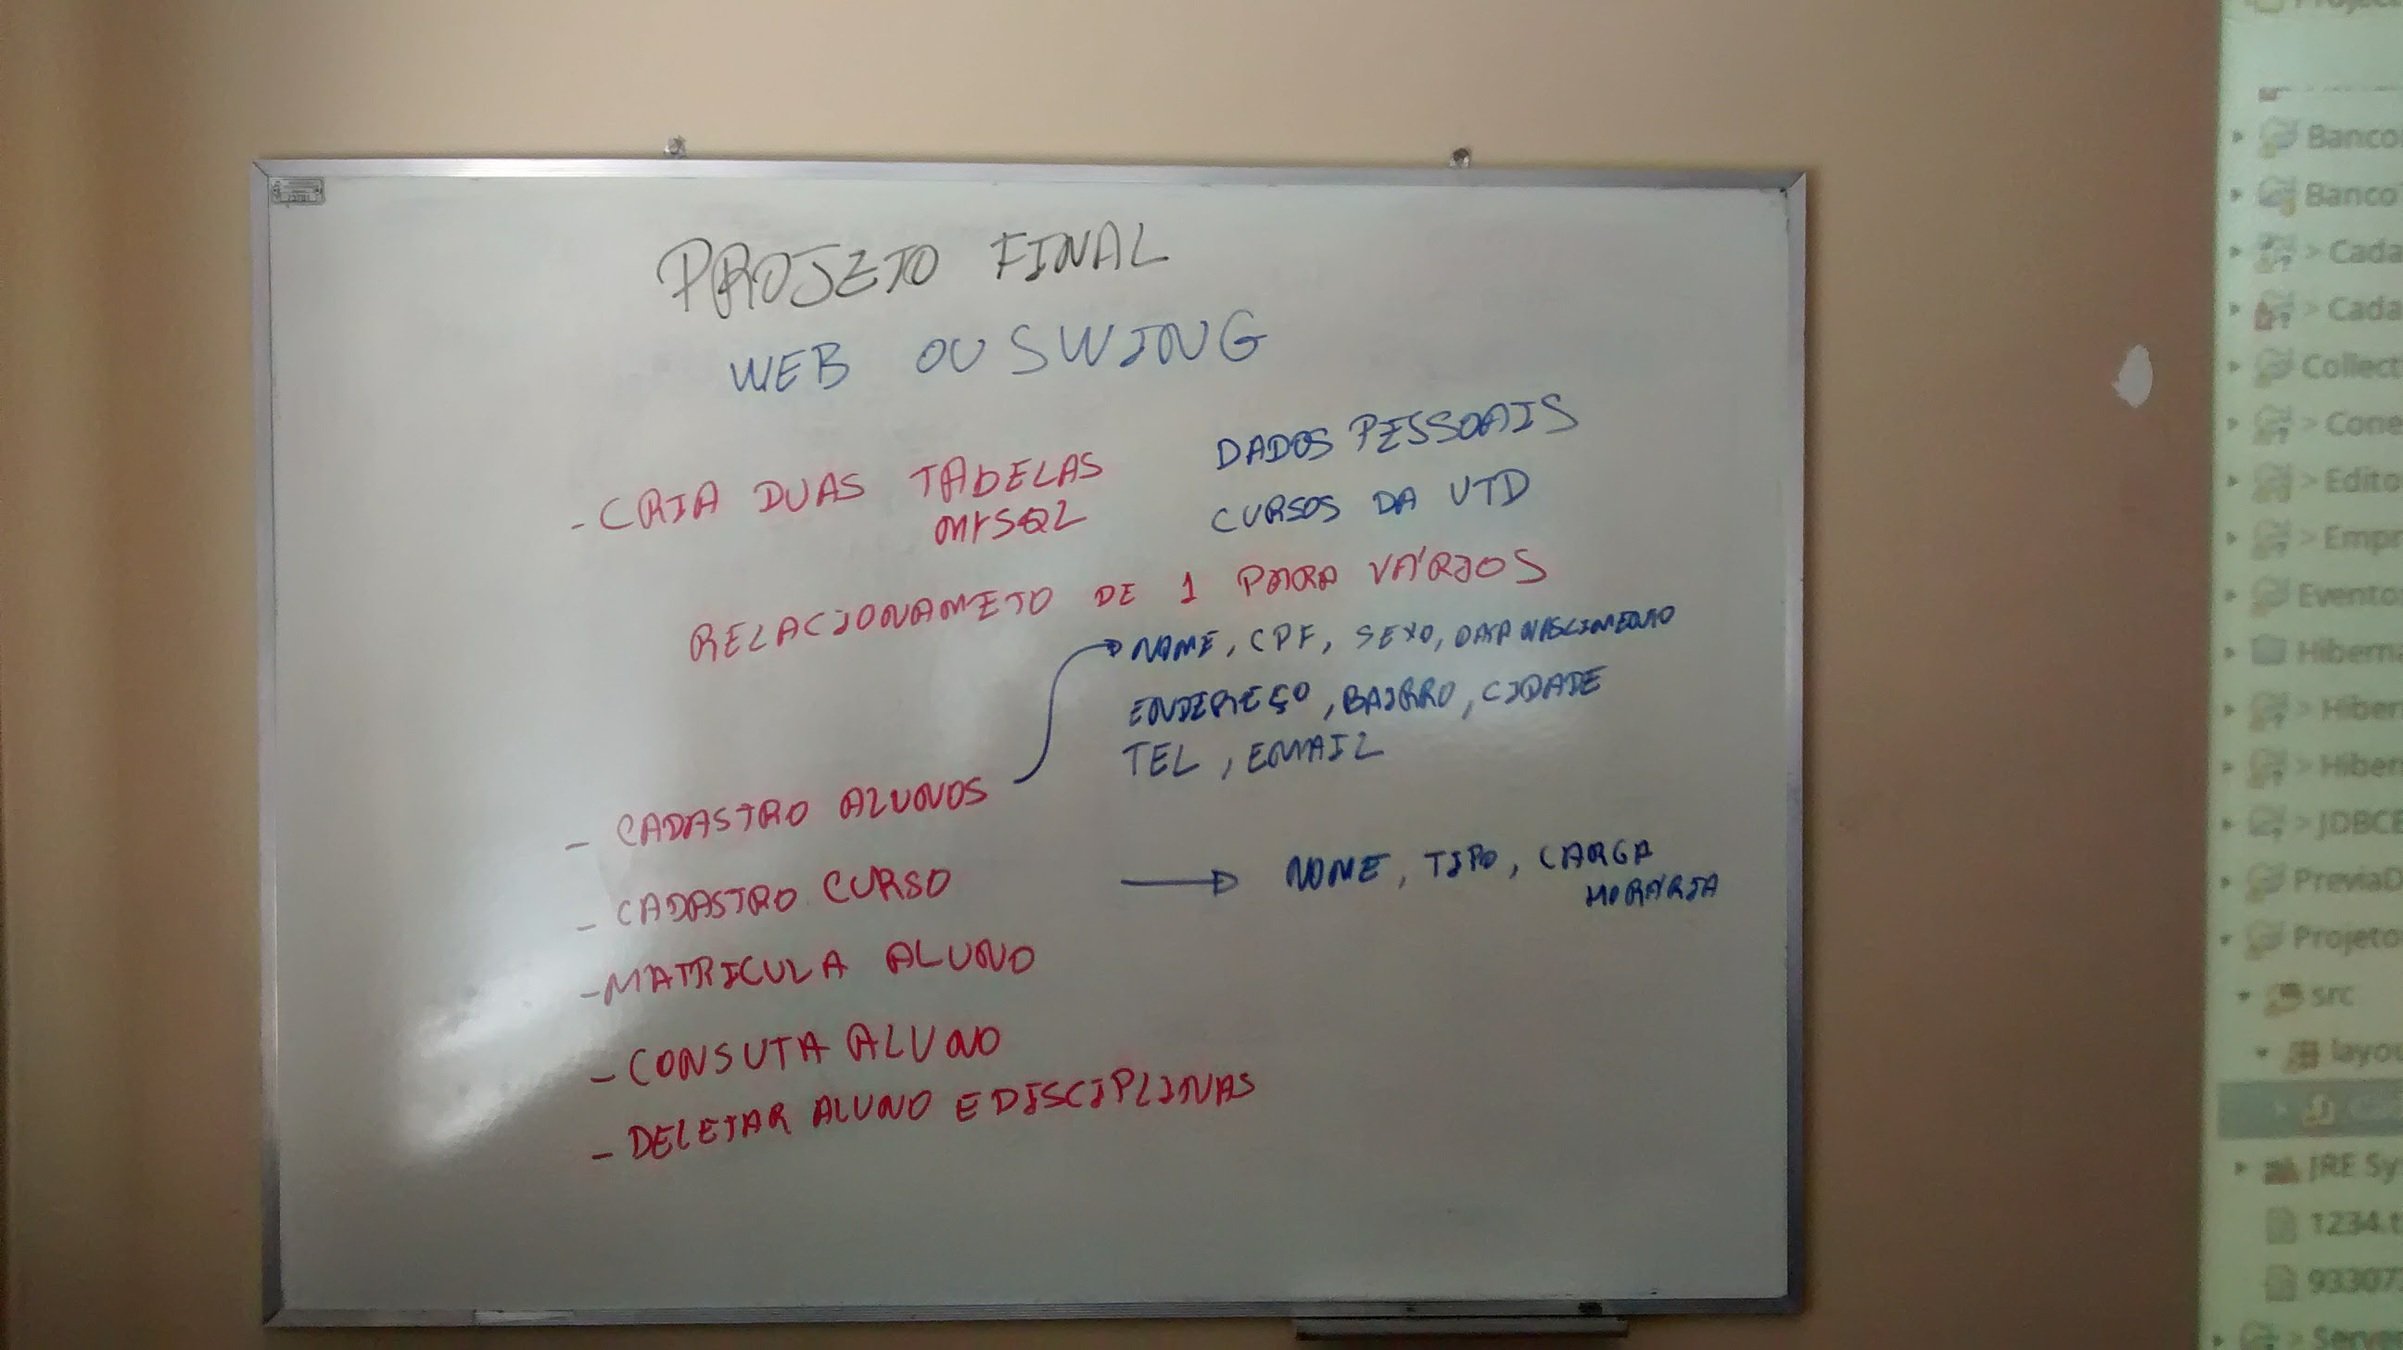 PROJETO FINAL
WEB OU SWING
- CRIA DUAS TABELAS
MYSQL
DADOS PESSOAIS
CURSOS DA UTD
RELACIONAMETO DE 1 PARA VÁRIOS
- CADASTRO ALUNOS
NOME, CPF, SEXO, DATA NASCIMENTO
ENDEREÇO, BAIRRO, CIDADE
TEL, EMAIL
- CADASTRO CURSO
NOME, TIPO, CARGA
HORÁRIA
- MATRICULA ALUNO
- CONSUTA ALUNO
- DELETAR ALUNO E DISCIPLINAS
Banco
Banco
> Cada
> Cada
Collect
> Cone
> Edito
> Empr
Evento
Hiberna
> Hiber
> Hiber
> JDBCE
PreviaD
Projeto
src
layou
JRE Sy
1234.t
93307
> Serve